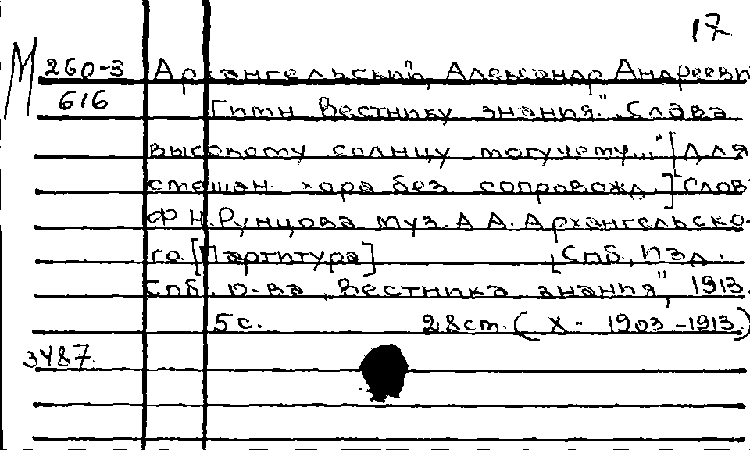 17
М 260-3 Архангельский, Александр Андрееви
616 Гимн „Вестнику знания". „Слава
высокому солнцу могучему..." [Для
смешан. хора без сопровожд.] Слов.
Ф. Н. Рунцова муз. А. А. Архангельско-
го [Партитура] [Спб, Изд.
Спб. о-ва „Вестника знания", 1913.
5 с. 28 cm. (X - 1903-1913.)
3487.